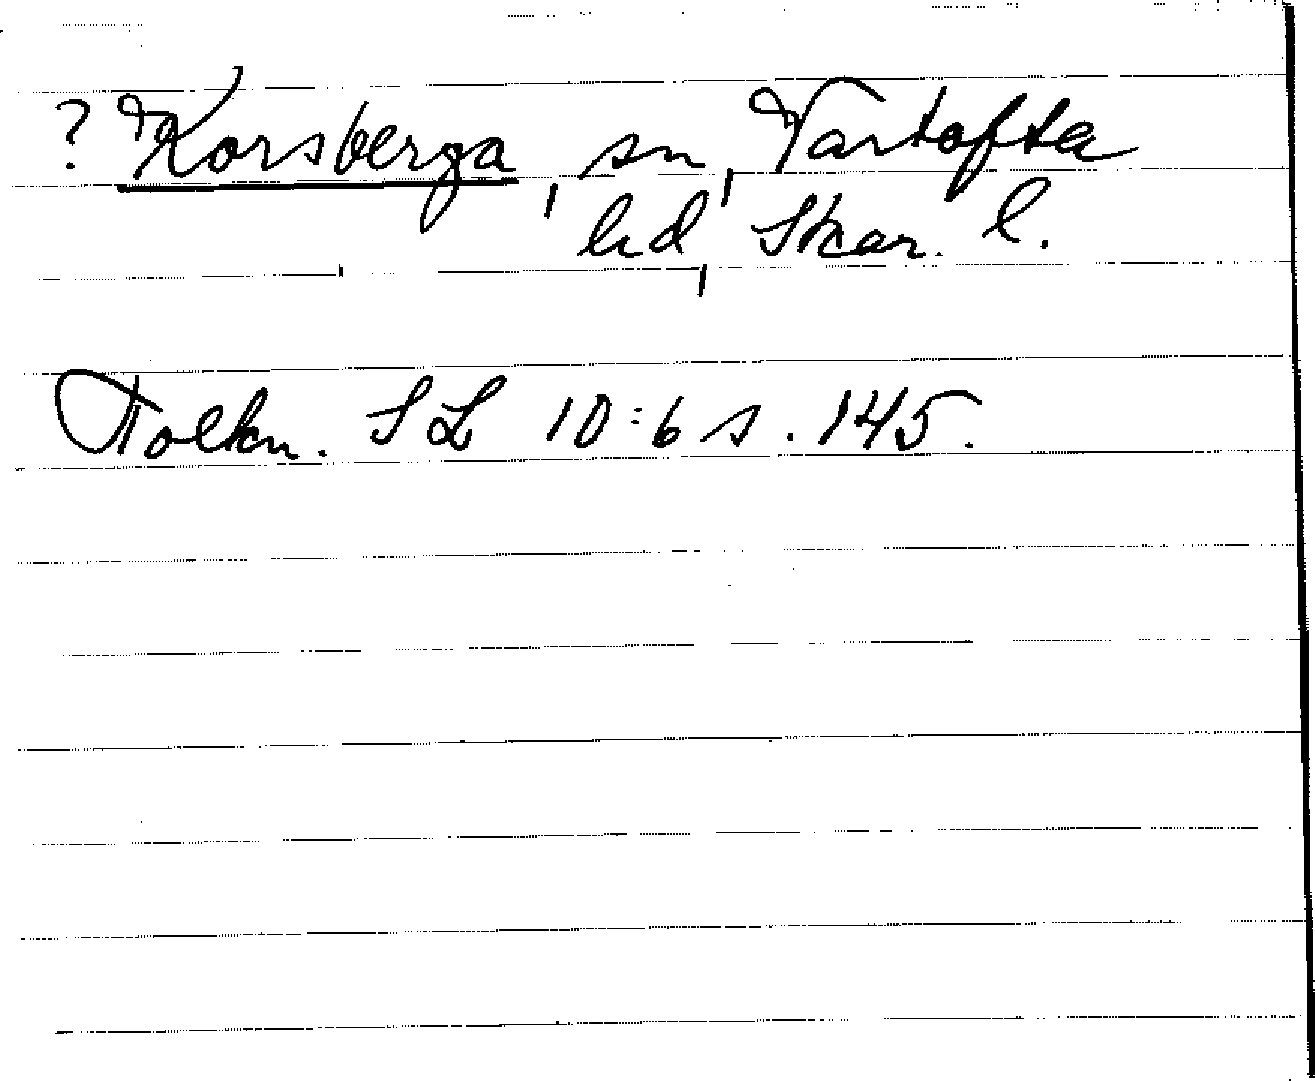 ? Korsberga, sn, Vartofta
hd, Skar. l.
Tolkn. SL 10:6 s. 145.